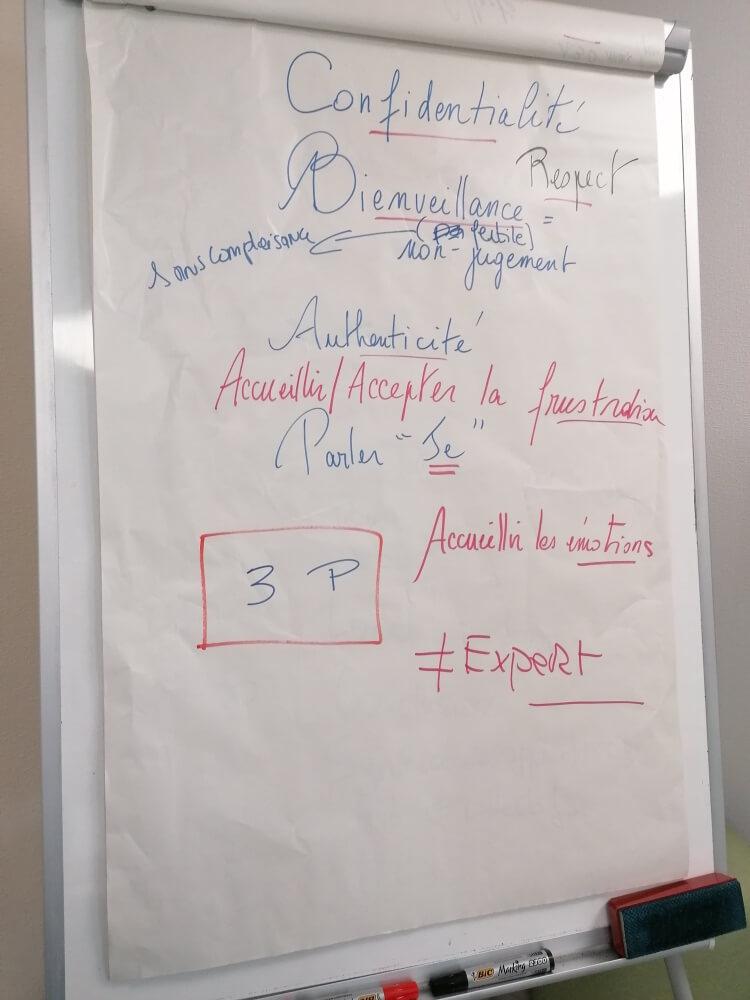 Confidentialité
Respect
Bienveillance =
(fertile)
sans complaisance
non-jugement
Authenticité
Accueillir/Accepter la frustration
Parler "Je"
Accueillir les émotions
3 P
≠ Expert
BIC Marking